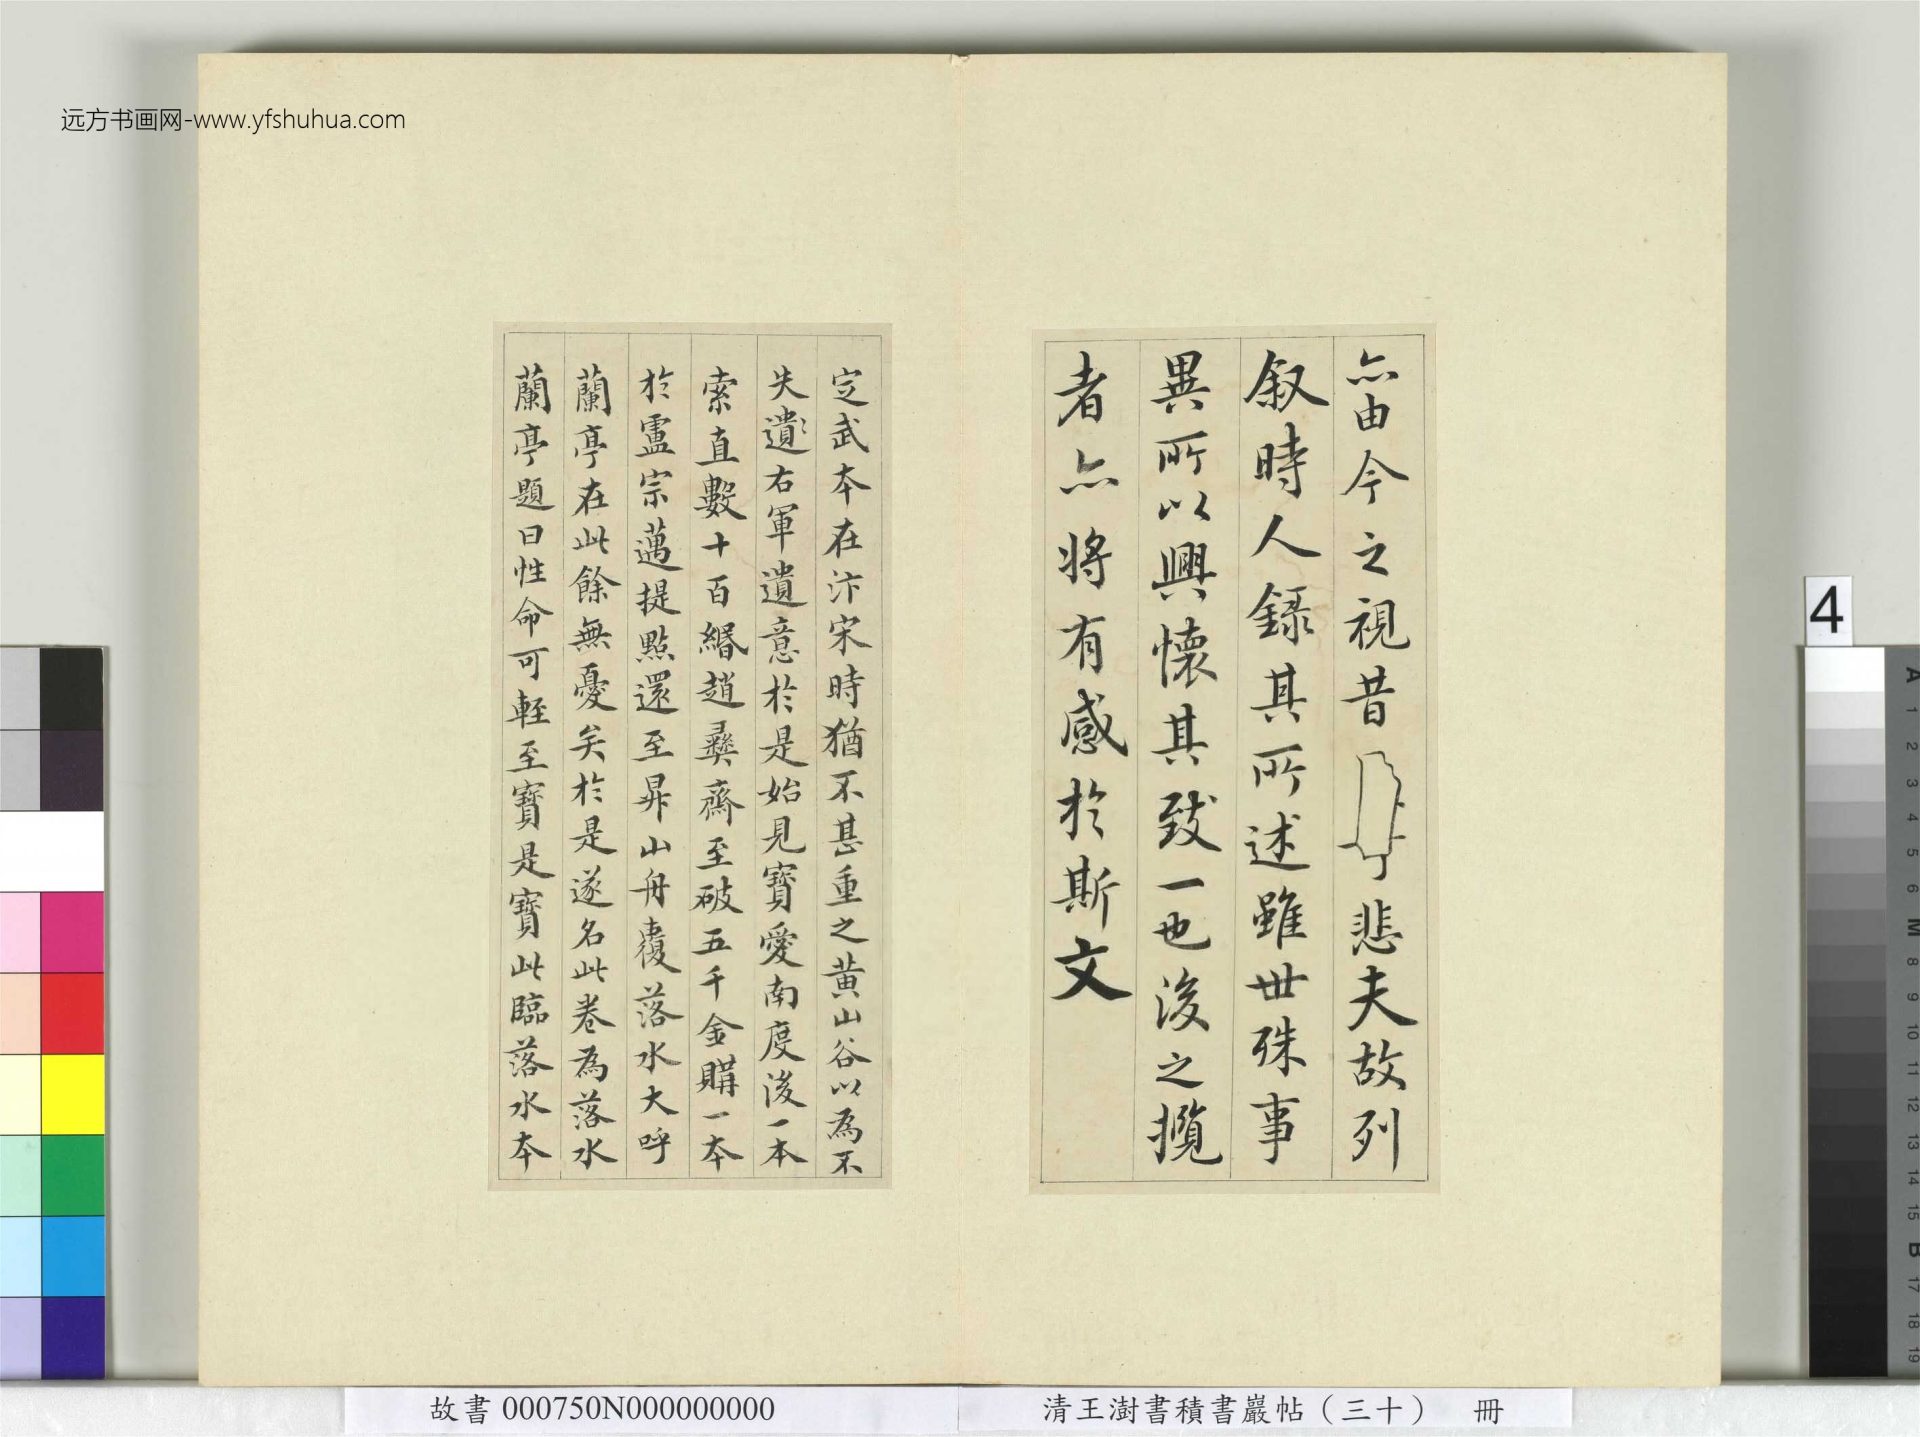 远方书画网-www.yfshuhua.com
亦由今之視昔悲夫故列
叙時人錄其所述雖世殊事
異所以興懷其致一也後之攬
者亦將有感於斯文
定武本在汴宋時猶不甚重之黃山谷以為不
失遺右軍遺意於是始見寶愛南度後一本
索直數十百緡趙彝齋至破五千金購一本
於盧宗邁提點還至昇山舟覆落水大呼
蘭亭在此餘無憂矣於是遂名此卷為落水
蘭亭題曰性命可輕至寶是寶此臨落水本
4
A
1
2
3
4
5
6
M
8
9
10
11
12
13
14
15
B
17
18
19
故書 000750N000000000
清王澍書積書巖帖（三十） 冊